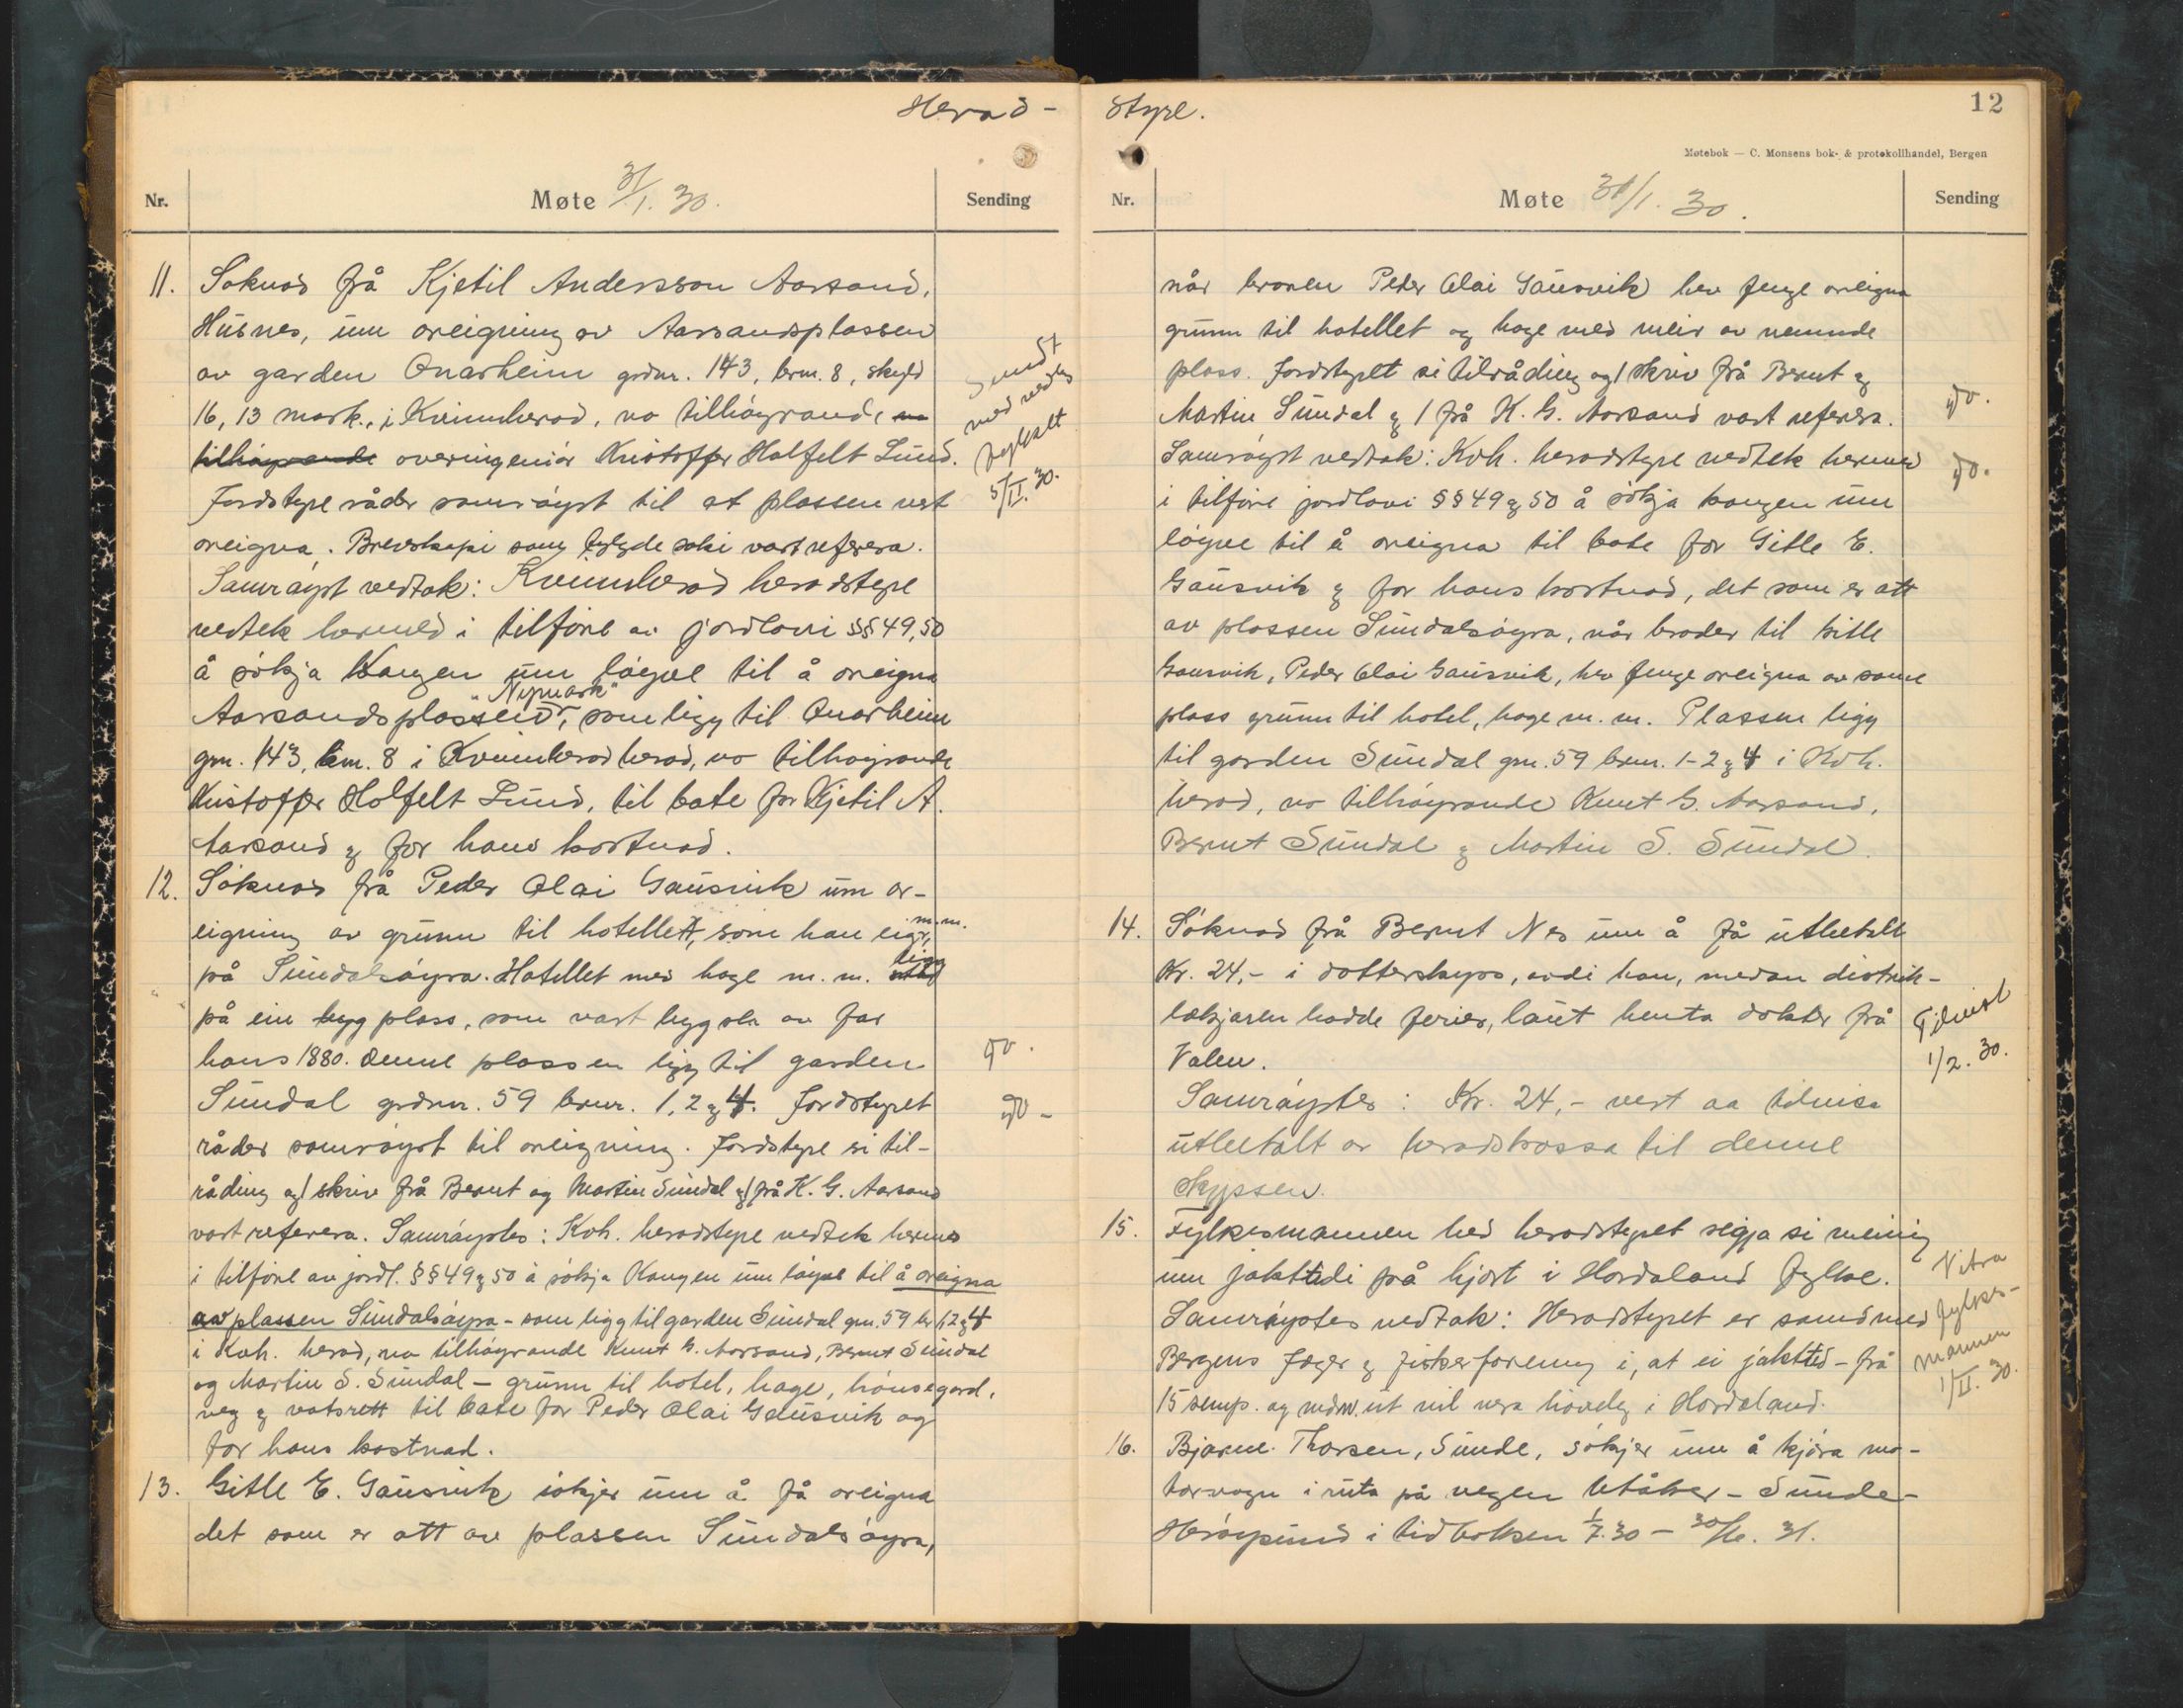 Herad-
Møte 31/1. 30.
Nr.
Sending
11. Söknad frå Kjetil Andersson Aarsand,
Husnes, um oreigning av Aarsandsplassen
av garden Onarheim grdnr. 143, brnr. 8, skyld
16,13 mark., i Kvinnherad, no tilhöyrande no
tilhöyrande overingeniör Kristoffer Holfelt Lund.
Jordstyre råder samröyst til at plassen vert
oreigna. Brevskapi som fylgde saki vart referera.
Samröyst vedtak: Kvinnherad heradstyre
vedtek hermed i tilföre av jordlovi §§ 49, 50
å sökja Kongen um löyve til å oreigna
"Nymark"
Aarsandsplassen, som ligg til Onarheim
gnr. 143, bnr. 8 i Kvinnherad herad, no tilhöyrande
Kristoffer Holfelt Lund, til bate for Kjetil A.
Aarsand og for hans kostnad.
Sendt
med vedlegg
fylket
5/II. 30.
12. Söknad frå Peder Olai Gausvik um or-
eigning av grunn til hotellet, som han eig, m.m.
på Sundalsöyra. Hotellet med hage m. m. ligg
på ein bygg plass, som vart bygsla av far
hans 1880. Denne plassen ligg til garden
Sundal grdnr. 59 brnr. 1, 2 og 4. Jordstyret
råder samröyst til oreigning. Jordstyre si til-
råding og 1 skriv frå Bernt og Martin Sundal og 1 frå K. G. Aarsand
vart referera. Samröystes: Kvh. heradstyre vedtek hermed
i tilföre av jordl. §§ 49 og 50 å sökja Kongen um löyve til å oreigna
av plassen Sundalsöyra - som ligg til garden Sundal gnr. 59 br 1,2 og 4
i Kvh. herad, no tilhöyrande Knut G. Aarsand, Bernt Sundal
og Martin S. Sundal - grunn til hotel, hage, hönsegard,
veg og vatsrett til bate for Peder Olai Gausvik og
for hans kostnad.
do.
do -
13. Gitle E. Gausvik sökjer um å få oreigna
det som er att av plassen Sundalsöyra,
Styre.
12
Møtebok — C. Monsens bok- & protokollhandel, Bergen
Nr.
Møte 31/1. 30.
Sending
når broren Peder Olai Gausvik hev fenge oreigna
grunn til hotellet og hage med meir av nemnde
plass. Jordstyret si tilråding og 1 skriv frå Bernt og
Martin Sundal og 1 frå K. G. Aarsand vart referera.
Samröyst vedtak: Kvh. heradstyre vedtek hermed
i tilföre jordlovi §§ 49 og 50 å sökja kongen um
löyve til å oreigna til bate for Gitle E.
Gausvik og for hans kostnad, det som er att
av plassen Sundalsöyra, når broder til Gitle
Gausvik, Peder Olai Gausvik, hev fenge oreigna av same
plass grunn til hotel, hage m. m. Plassen ligg
til garden Sundal gnr. 59 brnr. 1-2 og 4 i Kvh.
herad, no tilhöyrande Knut G. Aarsand,
Bernt Sundal og Martin S. Sundal.
do.
do.
14. Söknad frå Bernt Nes um å få utbetalt
Kr. 24,- i doktorskyss, avdi han, medan distrik-
lækjaren hadde ferier, laut henta dokter frå
Valen.
Samröystes: Kr. 24,- vert aa tilvisa
utbetalt av heradskassa til denne
skyssen.
Tilvist
1/2. 30.
15. Fylkesmannen bed heradstyret segja si meining
um jakttidi på hjort i Hordaland fylke.
Samröystes vedtak: Heradstyret er samd med
Bergens Jæger og Fiskerforening i, at ei jakttid - frå
15 semp. og ut vil vera höveleg i Hordaland.
V. frå
fylkes-
mannen
1/II. 30.
16. Bjarne Thorsen, Sunde, sökjer um å kjöra mo-
torvogn i ruta på vegen Utåker - Sunde -
Heröysund i tidbolken 1/7. 30 - 30/6. 31.